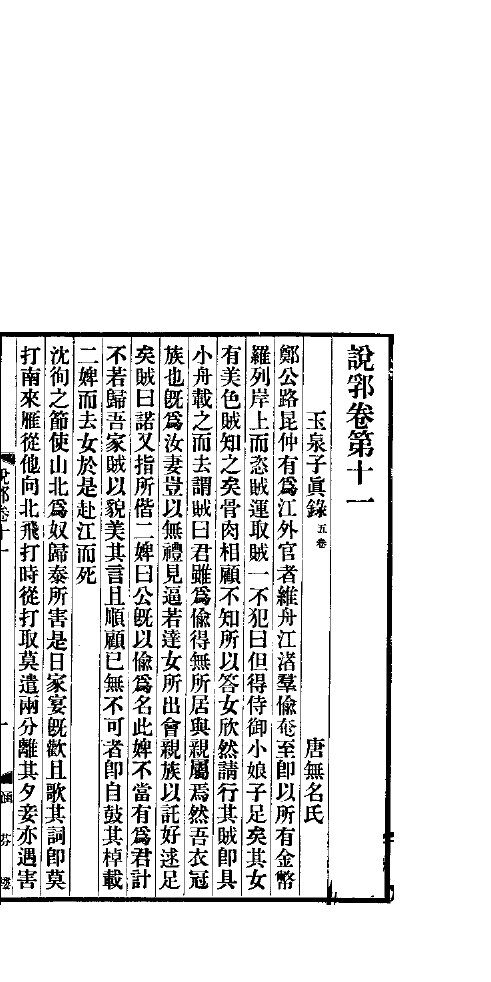 說郛卷第十一
玉泉子眞錄五卷 唐無名氏
鄭公路昆仲有爲江外官者維舟江渚羣偸奄至卽以所有金幣
羅列岸上而恣賊運取賊一不犯曰但得侍御小娘子足矣其女
有美色賊知之矣骨肉相顧不知所以答女欣然請行其賊卽具
小舟載之而去謂賊曰君雖爲偸得無所居與親屬焉然吾衣冠
族也旣爲汝妻豈以無禮見逼若達女所出會親族以託好逑足
矣賊曰諾又指所偕二婢曰公旣以偸爲名此婢不當有爲君計
不若歸吾家賊以貌美其言且順顧已無不可者卽自鼓其棹載
二婢而去女於是赴江而死
沈徇之節使山北爲奴歸泰所害是日家宴旣歡且歌其詞卽莫
打南來雁從他向北飛打時從打取莫遣兩分離其夕妾亦遇害
說郛卷十一 一 涵芬樓